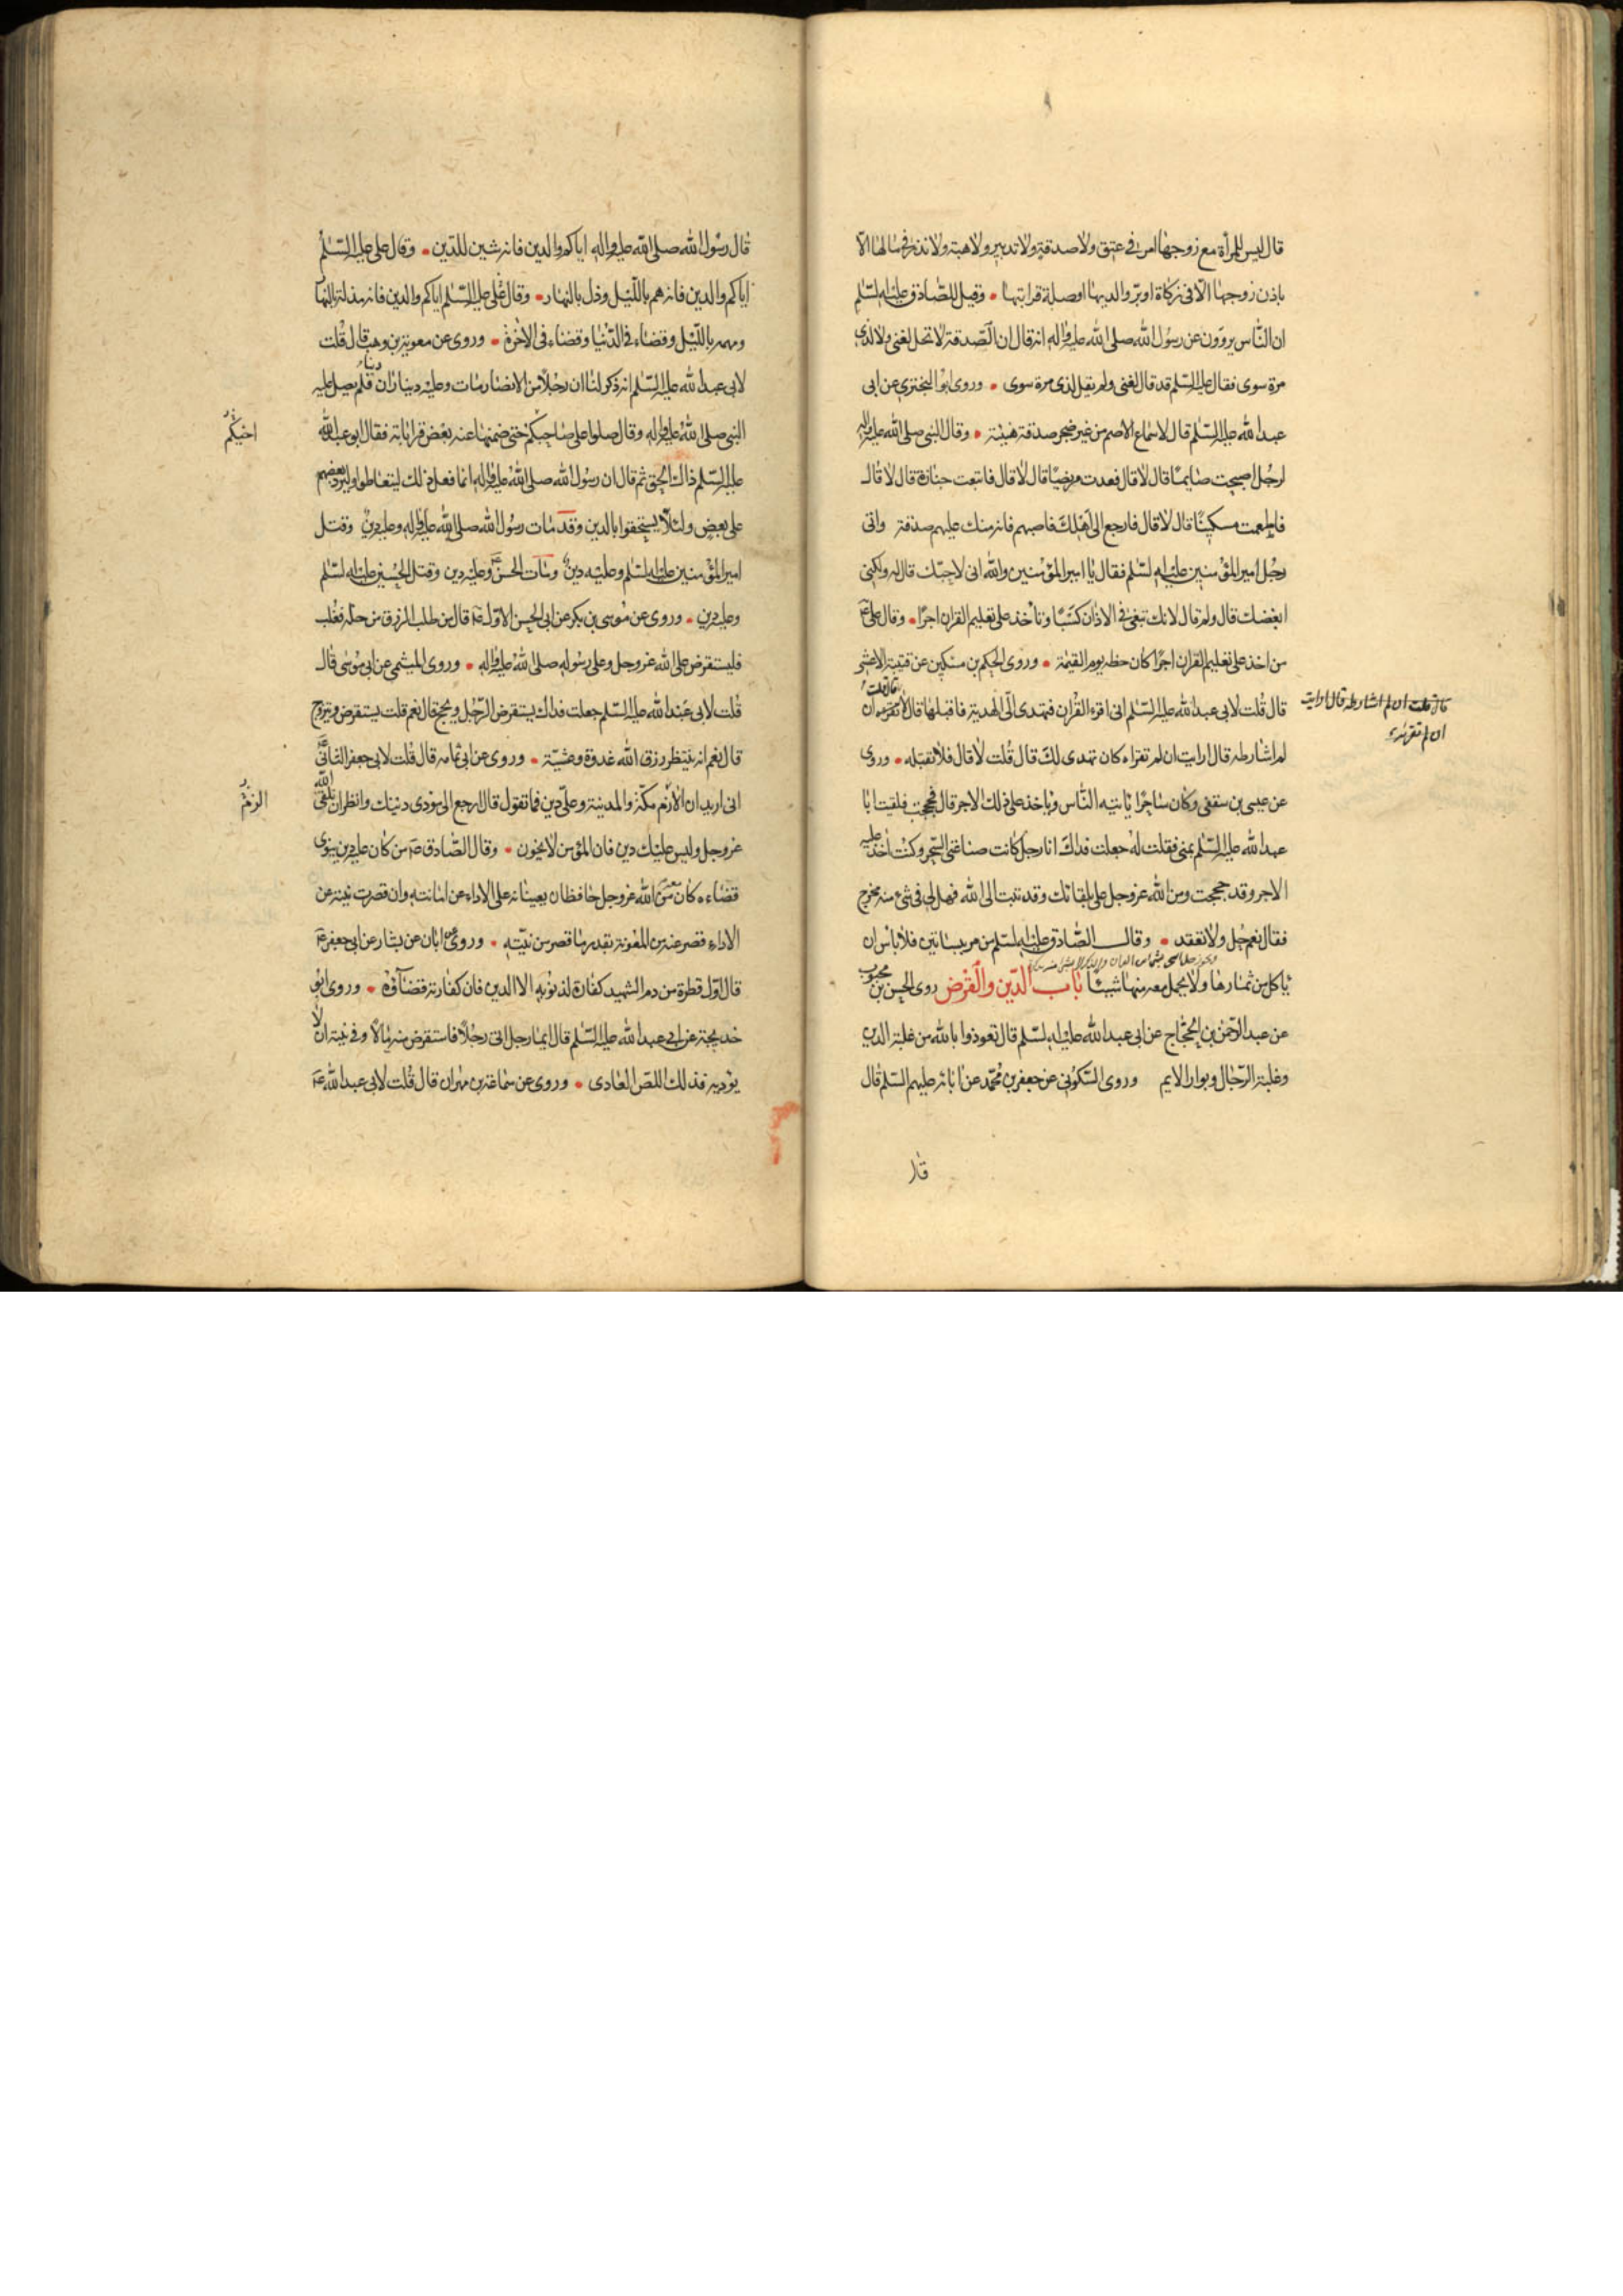 قال ليس للمرأة مع زوجها امر في عتق ولا صدقة ولا تدبير ولا هبة ولا نذر في مالها الا
باذن زوجها الا في زكاة او بر والديها او صلة قرابتها وقيل للصادق عليه السلم
ان الناس يروون عن رسول الله صلى الله عليه واله انه قال ان الصدقة لا تحل لغنى ولا لذى
مرة سوى فقال عليه السلم قد قال لغنى ولم يقل لذى مرة سوى وروى ابو البخترى عن ابى
عبد الله عليه السلم قال لاسماع الاصم من غير ضجر صدقة هنيئة وقال النبى صلى الله عليه واله
لرجل اصبحت صايما قال لا قال فعدت مريضا قال لا قال فاتبعت جنازة قال لا قال
فاطعمت مسكينا قال لا قال فارجع الى اهلك فاصبهم فانه منك عليهم صدقة واتى
رجل امير المؤمنين عليه السلم فقال يا امير المؤمنين والله انى لاحبك قال له ولكنى
ابغضك قال ولم قال لانك تبغى في الاذان كسبا وتاخذ على تعليم القران اجرا وقال على ع
من اخذ على تعليم القران اجرا كان حظه يوم القيمة وروى الحكم بن مسكين عن قتيبة الاعشى
قال قلت لابى عبد الله عليه السلم انى اقرء القران فتهدى الى الهدية فاقبلها قال لا قال قلت ان
قال قلت ان لم اشارطه قال ارايت
ان لم تقرئه
لم اشارطه قال ارايت ان لم تقراه كان تهدى لك قال قلت لا قال فلا تقبله وروى
عن عيسى بن سقفى وكان ساحرا ياتيه الناس وياخذ على ذلك الاجر قال فحججت فلقيت ابا
عبد الله عليه السلم بمنى فقلت له جعلت فداك انا رجل كانت صناعتى السحر وكنت اخذ عليه
الاجر وقد حججت ومن الله عز وجل على بلقائك وقد تبت الى الله فهل لى في شئ منه مخرج
فقال نعم حل ولا تعقد وقال الصادق عليه السلم من مر ببساتين فلا باس ان
ياكل من ثمارها ولا يحمل معه منها شيئا باب الدين والقرض روى الحسن بن محبوب
عن عبد الرحمن بن الحجاج عن ابى عبد الله عليه السلم قال تعوذوا بالله من غلبة الدين
وغلبة الرجال وبوار الايم وروى السكونى عن جعفر بن محمد عن ابائه عليهم السلم قال
قال
قال رسول الله صلى الله عليه واله اياكم والدين فانه شين للدين وقال على عليه السلم
اياكم والدين فانه هم بالليل وذل بالنهار وقال على عليه السلم اياكم والدين فانه مذلة بالنهار
ومهمة بالليل وقضاء في الدنيا وقضاء في الاخرة وروى عن معوية بن وهب قال قلت
لابى عبد الله عليه السلم انه ذكر لنا ان رجلا من الانصار مات وعليه ديناران فلم يصل عليه
النبى صلى الله عليه واله وقال صلوا على صاحبكم حتى ضمنها عنه بعض قراباته فقال ابو عبد الله
اخيكم
عليه السلم ذاك الحق ثم قال ان رسول الله صلى الله عليه واله انما فعل ذلك ليتعاطوا وليرد بعضهم
على بعض ولئلا يستخفوا بالدين وقد مات رسول الله صلى الله عليه واله وعليه دين وقتل
امير المؤمنين عليه السلم وعليه دين ومات الحسن ع وعليه دين وقتل الحسين عليه السلم
وعليه دين وروى عن موسى بن بكر عن ابى الحسن الاول ع قال من طلب الرزق من حله فغلب
فليستقرض على الله عز وجل وعلى رسوله صلى الله عليه واله وروى الميثمى عن ابى موسى قال
قلت لابى عبد الله عليه السلم جعلت فداك يستقرض الرجل ويحج قال نعم قلت يستقرض ويتزوج
قال نعم انه ينتظر رزق الله غدوة وعشية وروى عن ابى ثمامه قال قلت لابى جعفر الثانى ع
انى اريد ان الازم مكة والمدينة وعلى دين فما تقول قال ارجع الى مودى دينك وانظر ان تلقى الله
الزم
عز وجل وليس عليك دين فان المؤمن لا يخون وقال الصادق ع من كان عليه دين ينوى
قضاءه كان معه من الله عز وجل حافظان يعينانه على الاداء عن امانته وان قصرت نيته عن
الاداء قصر عنه من المعونة بقدر ما قصر من نيته وروى عن ابان عن بشار عن ابى جعفر ع
قال اول قطرة من دم الشهيد كفارة لذنوبه الا الدين فان كفارته قضاؤه وروى ابو
خديجة عن ابى عبد الله عليه السلم قال ايما رجل اتى رجلا فاستقرض منه مالا وفي نيته ان لا
يؤديه فذلك اللص العادى وروى عن سماعة بن مهران قال قلت لابى عبد الله ع